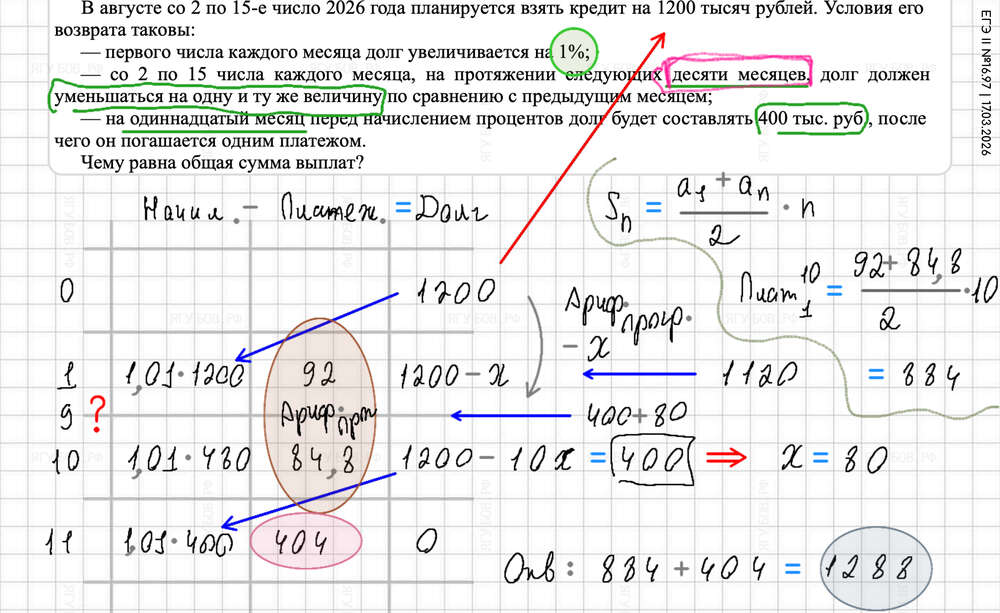 В августе со 2 по 15-е число 2026 года планируется взять кредит на 1200 тысяч рублей. Условия его
возврата таковы:
— первого числа каждого месяца долг увеличивается на 1%;
— со 2 по 15 числа каждого месяца, на протяжении следующих десяти месяцев, долг должен
уменьшаться на одну и ту же величину по сравнению с предыдущим месяцем;
— на одиннадцатый месяц перед начислением процентов долг будет составлять 400 тыс. руб., после
чего он погашается одним платежом.
Чему равна общая сумма выплат?
ЕГЭ II №1697 | 17.03.2026
Начисл. – Платеж. = Долг
Sn = (a1 + an)/2 · n
0 1200
Ариф. прогр.
– x
Плат 10 1 = (92 + 84,8)/2 · 10
= 884
1 1,01·1200 92 1200 – x 1120
9 ? Ариф. прог 400+80
10 1,01·480 84,8 1200 – 10x = 400 ⇒ x = 80
11 1,01·400 404 0
Отв: 884 + 404 = 1288
ЯГУБОВ.РФ